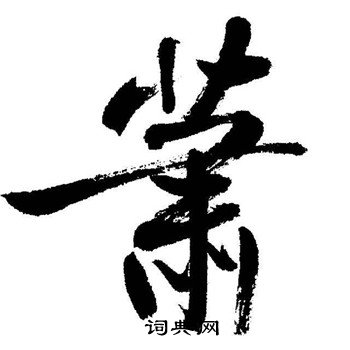 萧
词典网